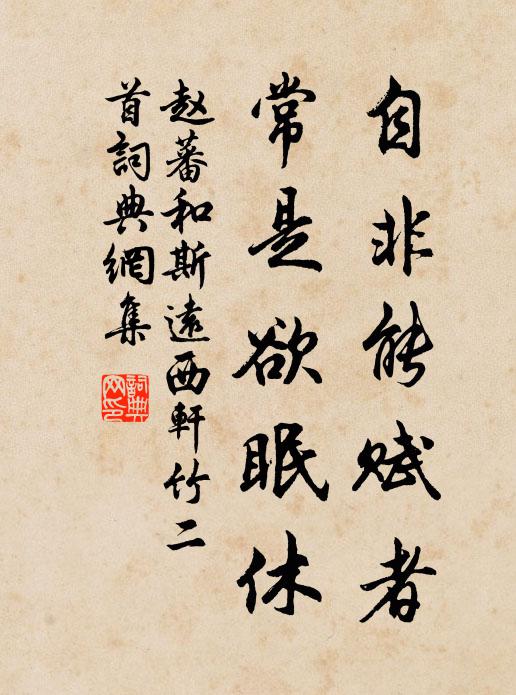 自非能赋者
常是欲眠休
赵蕃和斯遠西軒竹二
首詞典網集
詞典
网印